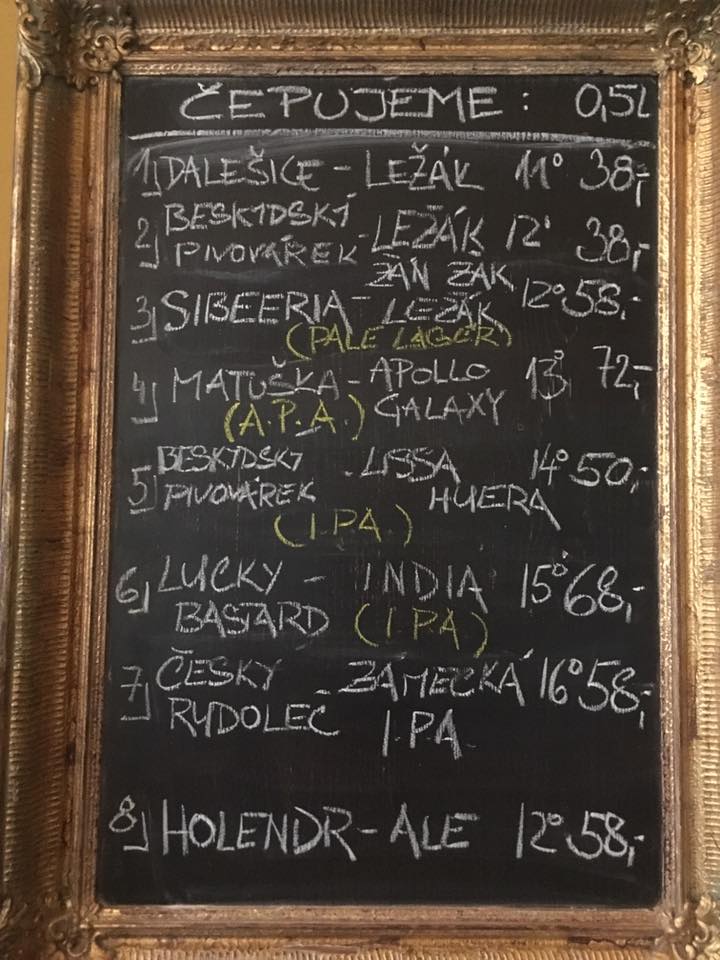 ČEPUJEME: 0,5l
1) DALEŠICE - LEŽÁK 11° 38,-
2) BESKYDSKÝ
PIVOVÁREK - LEŽÁK 12° 38,-
ŽÁN ŽAK
3) SIBEERIA - LEŽÁK 12° 58,-
(PALE LAGER)
4) MATUŠKA - APOLLO 13° 72,-
(A.P.A.) GALAXY
5) BESKYDSKÝ - LISSA 14° 50,-
PIVOVÁREK HUERA
(I.P.A.)
6) LUCKY - INDIA 15° 68,-
BASTARD (I.P.A)
7) ČESKÝ - ZÁMECKÁ 16° 58,-
RYDOLEC I.P.A.
8) HOLENDR - ALE 12° 58,-